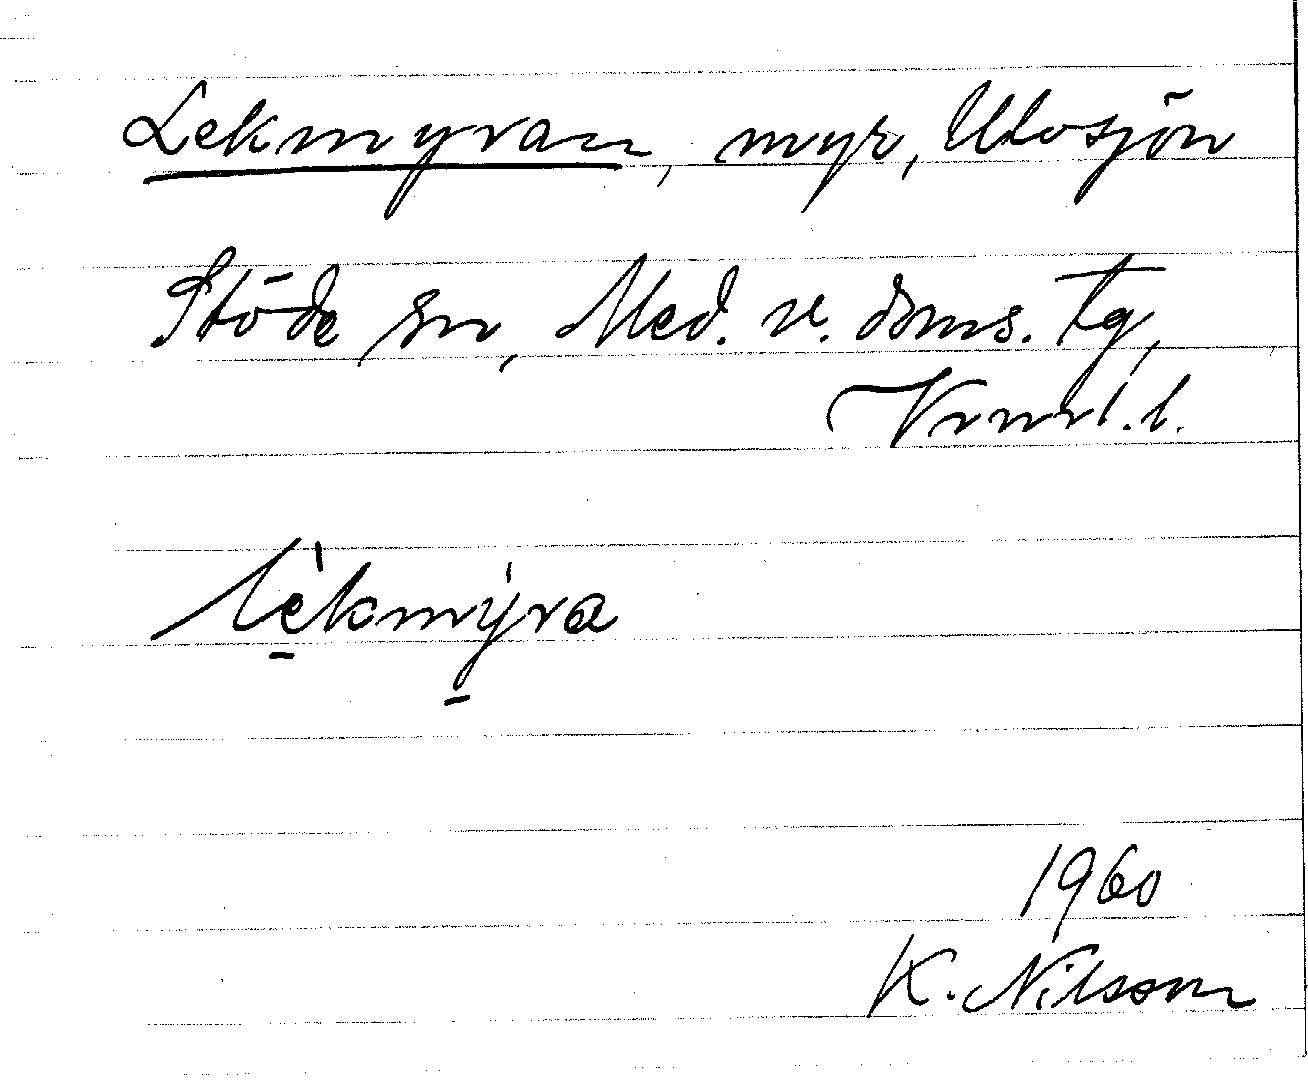 Lekmyran, myr, Utosjön
Stöde sn, Med. v. doms. tg,
Vrnrl. l.
lèkmýra
1960
K. Nilsson